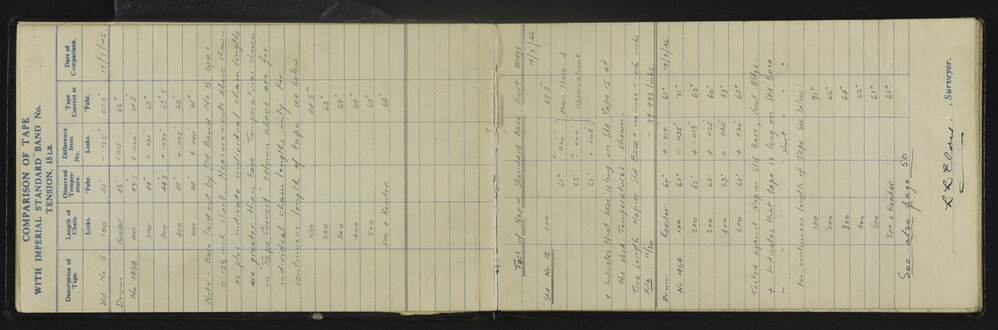 COMPARISON OF TAPE
WITH IMPERIAL STANDARD BAND No.
TENSION, 15 LB.
Description of Tape. Length of Chain. Observed Temper-ature. Difference from No. Tape Correct at Date of Comparison.
Links. °Fahr. Links. °Fahr.
Std No 15 100 42° - .125 67.5°
Drum Reader 43°
No 1454 100 43.5 + .020
200 44°
300 44.5 + .020 63.5
400 45° 65°
500 44° 61°
Note - Base laid out by Std Band No 15 was
0.125 short. Measurements above shown
as plus indicate individual chain lengths
are greater than base. Temperatures shown
in "Tape Correct" column above are for
individual chain lengths only. For
continuous length of tape see below.
100 64.5°
200 63°
300 64°
400 64°
500 63°
500 + Reader 64°
Test of Napier Standard Base Govt Bldgs
19/2/46
Std No 15 100 61° + .020 67.3° Mean these 3
65° - .000 observations
63° + .008
+ Indicates that base is long on Std Tape 15 at
the obsd Temperatures shown.
True Length Napier Std Base = minus .06 inch
File = 99.993 links
Drum Reader 60° + .010 61° 19/2/46
No 1454 100 61° - .055 71°
200 61° + .015 62°
300 63° + .025 60°
400 63° 53°
500 61° + .020 61°
Tested against Napier Std Base, Govt Bldgs
+ Indicates that tape is long on Std Base
- " " " short " " "
For continuous length of Tape see below.
100 71°
200 66°
300 64°
400 62°
500 61°
500 + Reader 61°
See also page 50
, Surveyor.